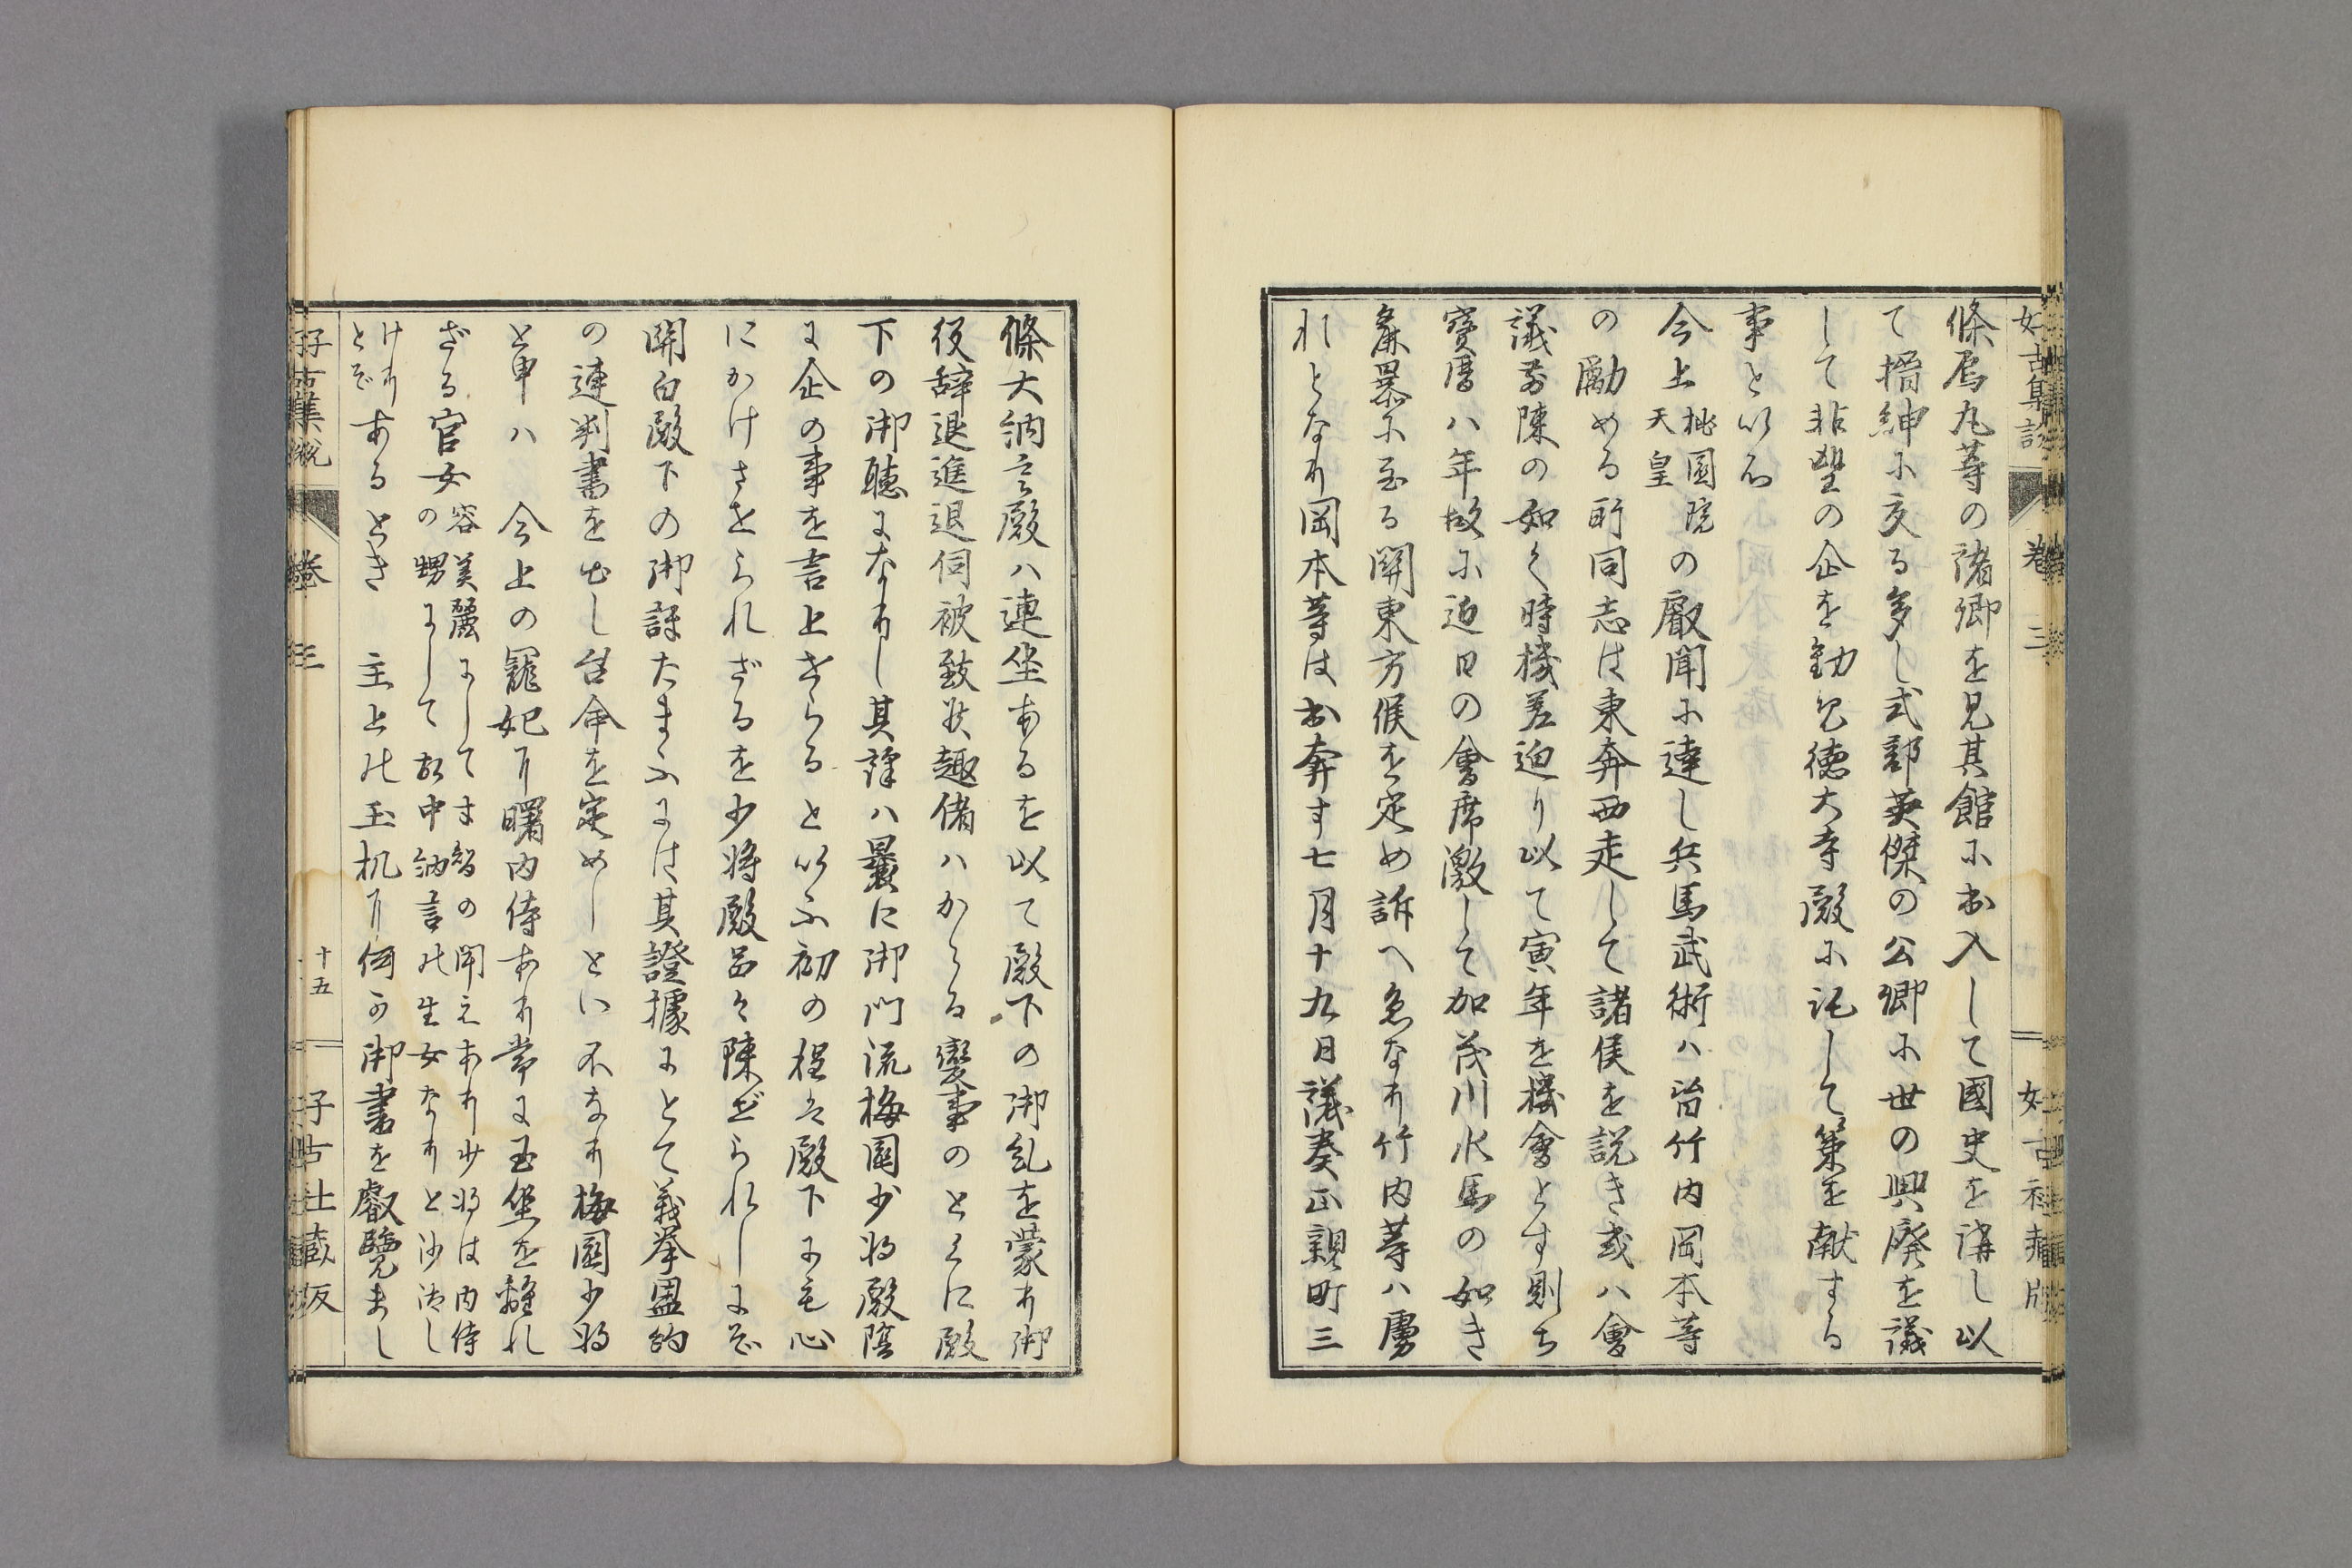 好古集説 卷三 好古社藏版
條烏丸等の諸卿を見其館尓出入して國史を講し以
て搢紳尓交る多し式部英傑の公卿尓世の興廢を議
して非望の企を勧免徳大寺殿尓託して策を献する
事といふ
今上桃園院天皇の叡聞尓達し兵馬武術ハ皆竹内岡本等
の勵める所同志は東奔西走して諸侯を説き或ハ會
議前陳の如く時機差迫り以て寅年を機會とす則ち
寶暦八年故尓近日の會席激して加茂川水馬の如き
麁暴尓至る關東方候を定め訴へ急なり竹内等ハ勇
れとなり岡本等は出奔す七月十九日議奏正親町三
條大納言殿ハ連坐あるを以て殿下の御糺を蒙り御
役辞退進退伺被致候趣偖ハかゝる變事のとくに殿
下の御聴尓なりし其譯ハ曩に御門流梅園少将殿陰
に企の事を言上せらるといふ初の程は殿下にも心
にかけさせられざるを少将殿呂々陳ぜられしに
関白殿下の御訝たまふには其證據にとて義挙盟約
の連判書を出し台命を定めしとい不なり梅園少将
と申ハ 今上の寵妃に曙内侍あり常に玉坐を離れ
ざる官女容美麗にしてま智の聞えあり少将は内侍の甥にして故中納言の生女なりと沙汰し
けりとぞあるとき 主上の玉机に何か御書を叡覧まし
好古集説 卷三 十五 好古社藏版